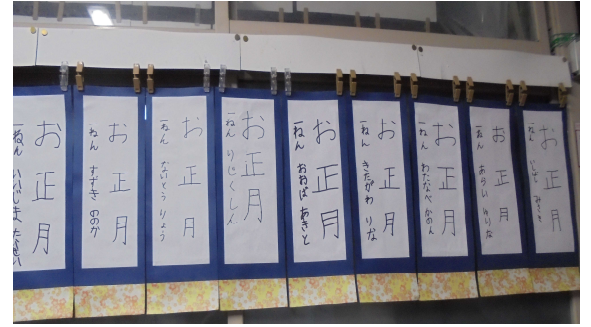 お正月
一ねん
お正月
一ねん すずき ののか
お正月
一ねん ないとう りょう
お正月
一ねん りじくしん
お正月
一ねん おおば あきと
お正月
一ねん きたがわ りな
お正月
一ねん わたなべ かのん
お正月
一ねん あらい りりな
お正月
一ねん